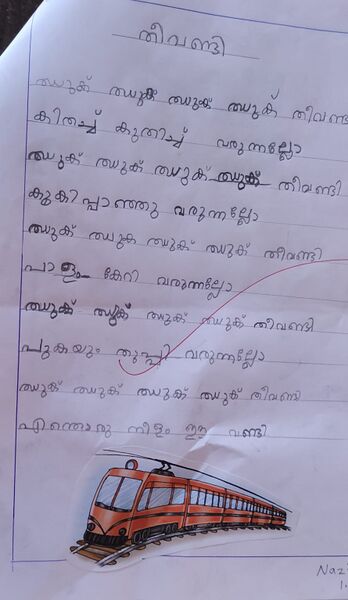 തീവണ്ടി
ഝുക് ഝുക് ഝുക് ഝുക് തീവണ്ടി
കിതച്ച് കുതിച്ച് വരുന്നല്ലോ
ഝുക് ഝുക് ഝുക് ഝുക് തീവണ്ടി
കൂകിപ്പാഞ്ഞു വരുന്നല്ലോ
ഝുക് ഝുക ഝുക് ഝുക് തീവണ്ടി
പാളം കേറി വരുന്നല്ലോ
ഝുക് ഝുക് ഝുക് ഝുക് തീവണ്ടി
പുകയും തുപ്പി വരുന്നല്ലോ
ഝുക് ഝുക് ഝുക് ഝുക് തീവണ്ടി
എന്തൊരു നീളം ഈ വണ്ടി